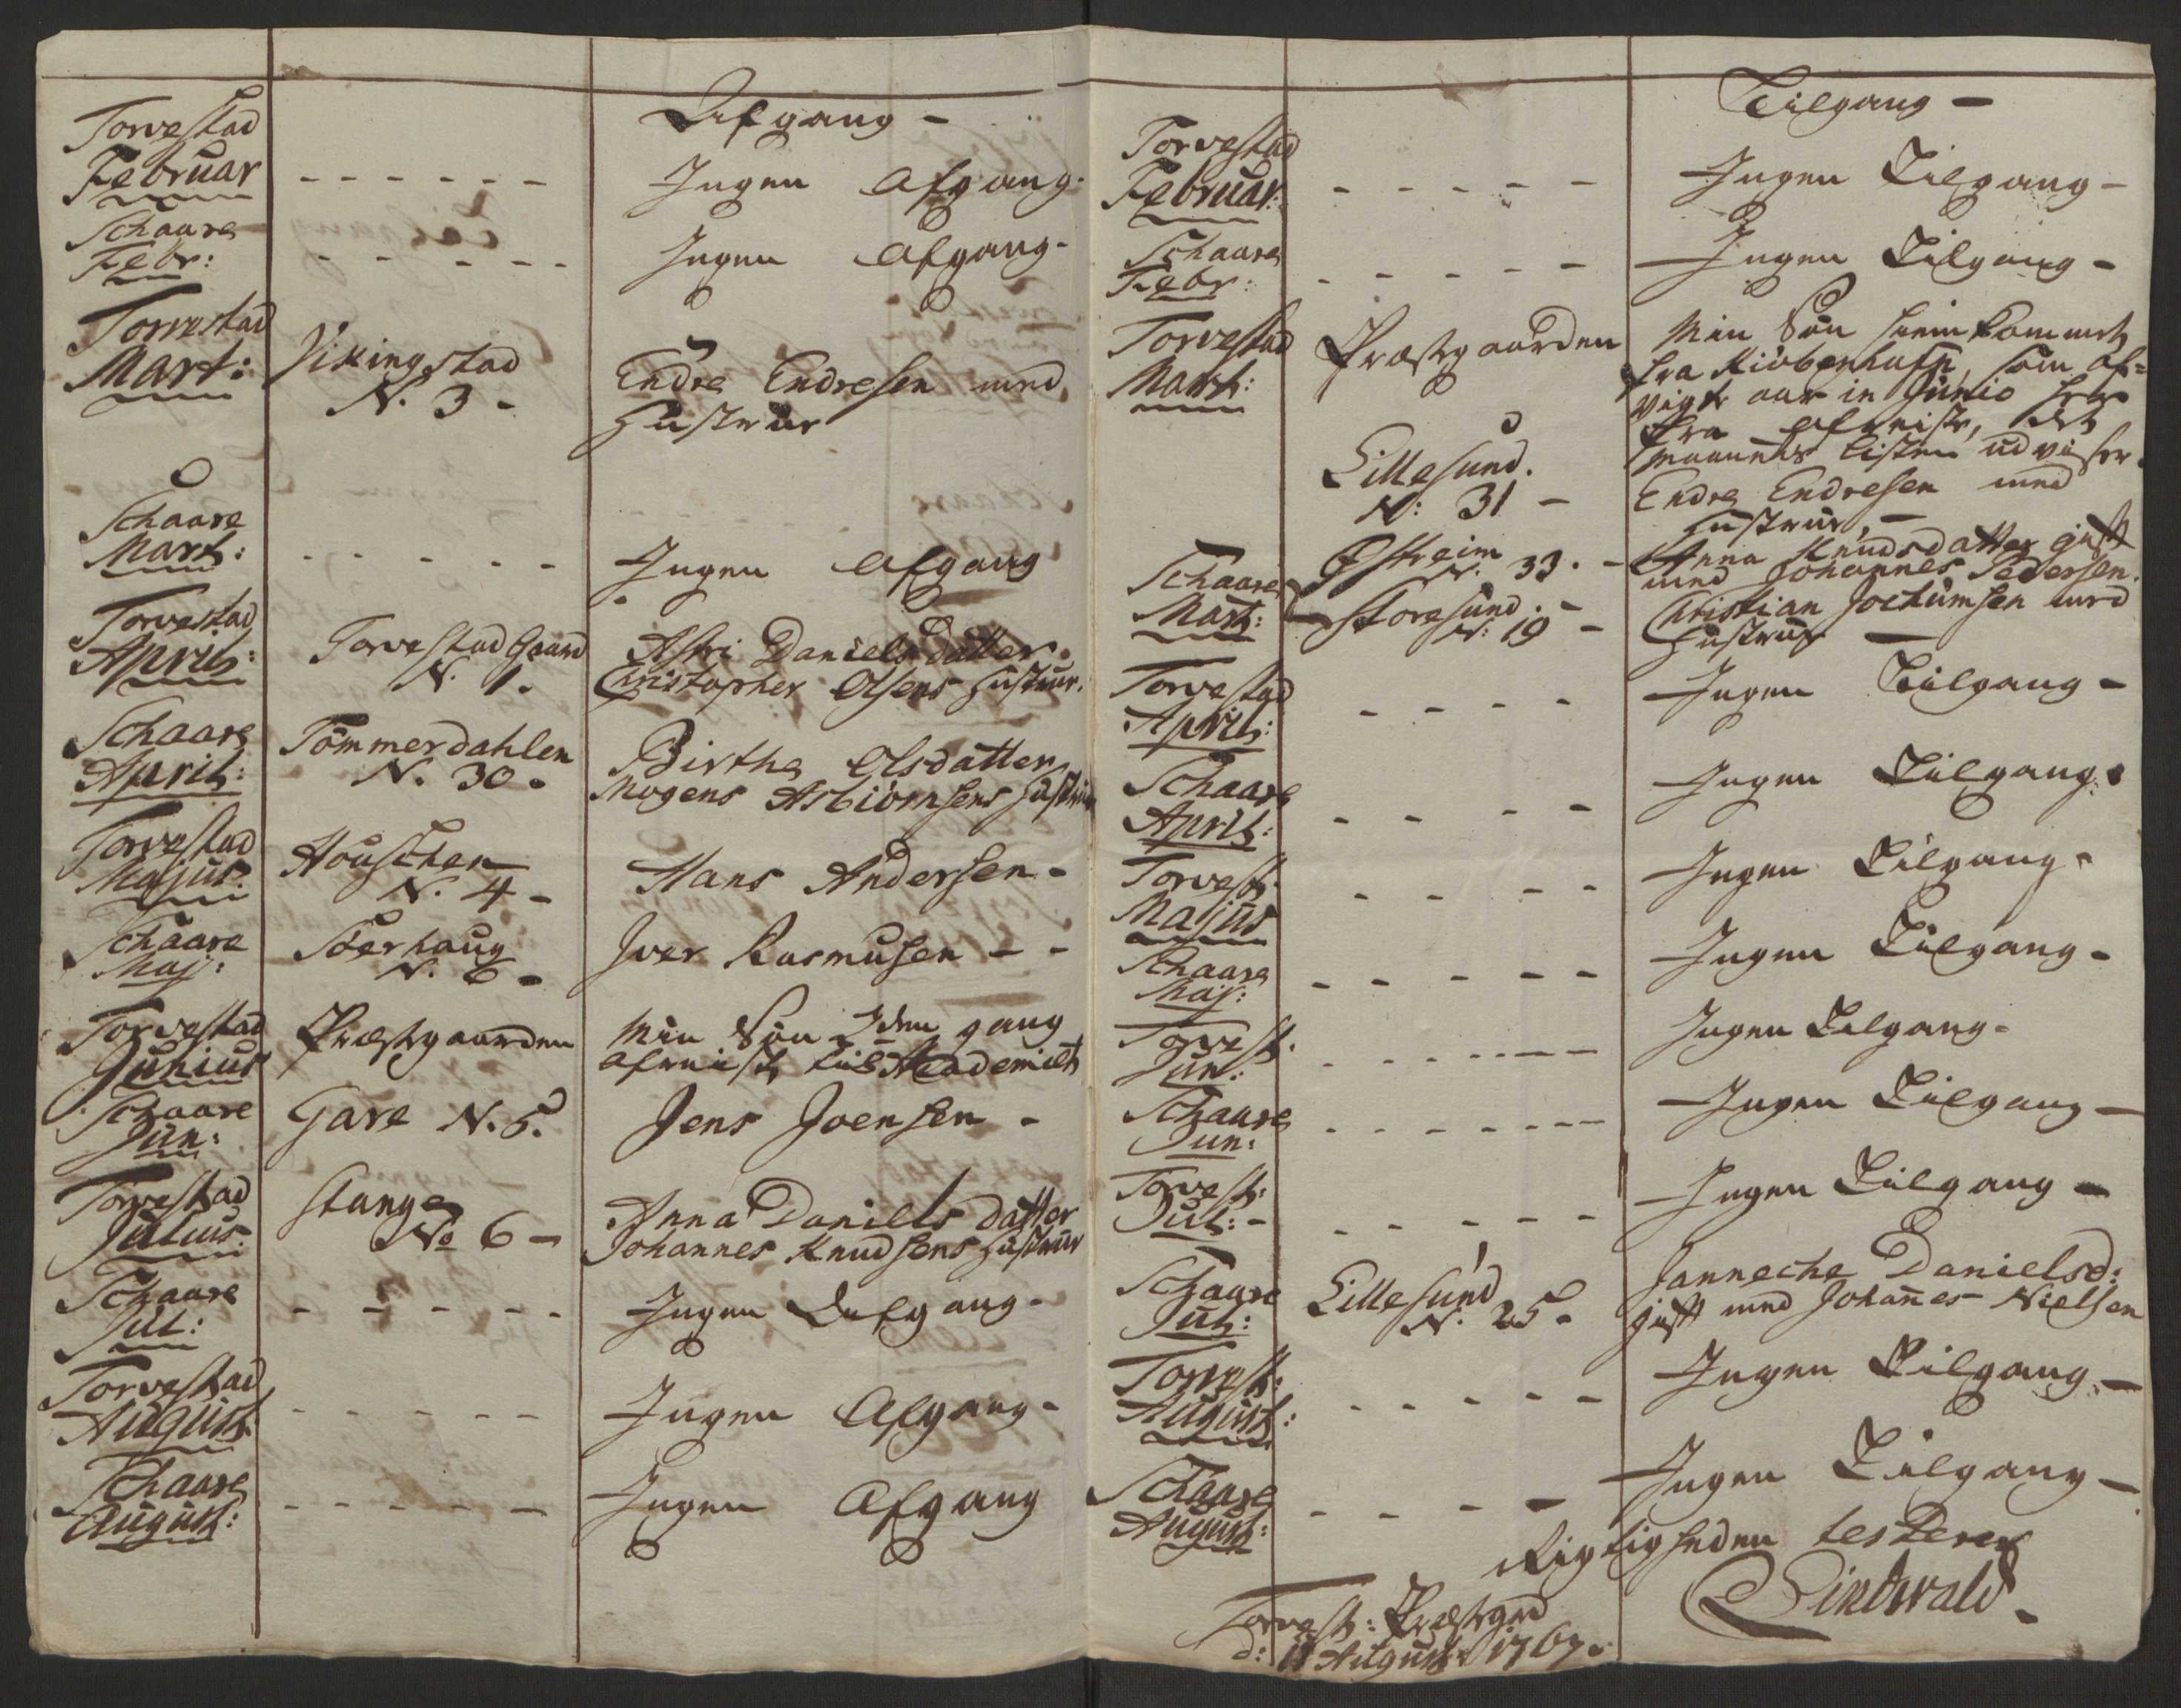 Afgang -
Torvestad
Februar - - - - - - Ingen Afgang -
Schaare
Febr: - - - - - - Ingen Afgang -
Torvestad
Mart: Vikingstad
N. 3 - Endre Endresen med
Hustrue
Schaare
Mart: - - - - - - Ingen Afgang
Torvestad
April: Torvestad Gaard
N. 1. Astri Daniels datter.
Christopher Olsens Hustrue.
Schaare
April: Tømmerdahlen
N. 30. Birthe Olsdatter
Mogens Asbiørnsens Hustrue
Torvestad
Majus: Houschen
N. 4 - Hans Andersen -
Schaare
Maj: Søerhaug
N. 6 - Iver Rasmusen - -
Torvestad
Junius Præstgaarden Min Søn 2den gang
afreist til Academiet
Schaare
Jun: Gare N. 5. Jens Joensen -
Torvestad
Julius: Stange
No 6 - Anna Daniels datter
Johannes Knudsens Hustrue
Schaare
Jul: - - - - - Ingen Afgang -
Torvestad
August: - - - - - Ingen Afgang -
Schaare
August: - - - - - Ingen Afgang
Tilgang -
Torvestad
Februar: - - - - - Ingen Tilgang -
Schaare
Febr: - - - - - Ingen Tilgang -
Torvestad
Mart: Præstgaarden Min Søn hiemkommet
fra Kiøbenhafn, som af=
vigte aar in Junio her
fra afreiste, det
Maanets Listen udviser.
Lillesund.
N: 31 - Endre Endresen med
Hustrue, -
Schaare
Mart: Østreim
N. 33. - Anna Knudsdatter gift
med Johannes Pedersen.
Storesund. -
N: 19 - Christian Jochumsen med
Hustrue -
Torvestad
April: - - - - Ingen Tilgang -
Schaare
April: - - - - Ingen Tilgang.
Torvest:
Majus - - - - Ingen Tilgang.
Schaare
Maj: - - - - - Ingen Tilgang -
Torvest.
Jun: - - - - - - - Ingen Tilgang -
Schaare
Jun: - - - - - - - Ingen Tilgang -
Torvest:
Jul: - - - - - - Ingen Tilgang -
Schaare
Jul: Lillesund
N. 25. Janneche Danielsd:
gift med Johanes Nielsen
Torvest:
August: - - - - - Ingen Tilgang -
Schaare
August: - - - - Ingen Tilgang -
Rigtigheden testerer
Torvest: Præstgrd
d: 11 August 1767. Lintwald -